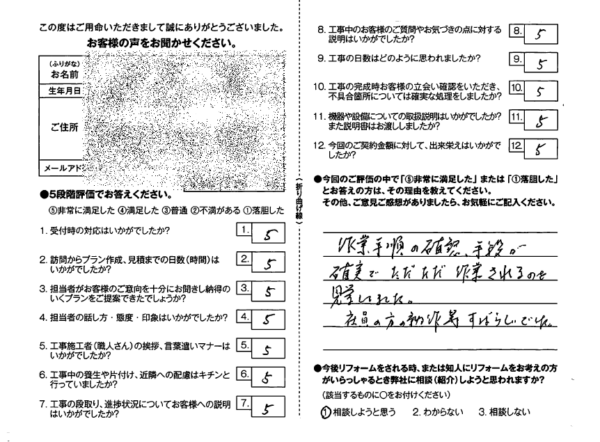 この度はご用命いただきまして誠にありがとうございました。
お客様の声をお聞かせください。
(ふりがな)
お名前
生年月日
ご住所
メールアド
●5段階評価でお答えください。
⑤非常に満足した ④満足した ③普通 ②不満がある ①落胆した
1. 受付時の対応はいかがでしたか？
1. 5
2. 訪問からプラン作成、見積までの日数(時間)は
いかがでしたか？
2. 5
3. 担当者がお客様のご意向を十分にお聞きし納得の
いくプランをご提案できたでしょうか？
3. 5
4. 担当者の話し方・態度・印象はいかがでしたか？
4. 5
5. 工事施工者(職人さん)の挨拶、言葉遣いマナーは
いかがでしたか？
5. 5
6. 工事中の養生や片付け、近隣への配慮はキチンと
行っていましたか？
6. 5
7. 工事の段取り、進捗状況についてお客様への説明
はいかがでしたか？
7. 5
(折り曲げ線)
8. 工事中のお客様のご質問やお気づきの点に対する
説明はいかがでしたか？
8. 5
9. 工事の日数はどのように思われましたか？
9. 5
10. 工事の完成時お客様の立会い確認をいただき、
不具合箇所については確実な処理をしましたか？
10. 5
11. 機器や設備についての取扱説明はいかがでしたか？
また説明書はお渡ししましたか？
11. 5
12. 今回のご契約金額に対して、出来栄えはいかがで
したか？
12. 5
●今回のご評価の中で「⑤非常に満足した」または「①落胆した」
とお答えの方は、その理由を教えてください。
その他、ご意見ご感想がありましたら、お気軽にご記入ください。
作業手順の確認、手段が
確実でただただ作業されるのを
見学しました。
社員の方の動作等すばらしいでした。
●今後リフォームをされる時、または知人にリフォームをお考えの方
がいらっしゃるとき弊社に相談(紹介)しようと思われますか？
(該当するものに○をお付けください)
1. 相談しようと思う 2. わからない 3. 相談しない